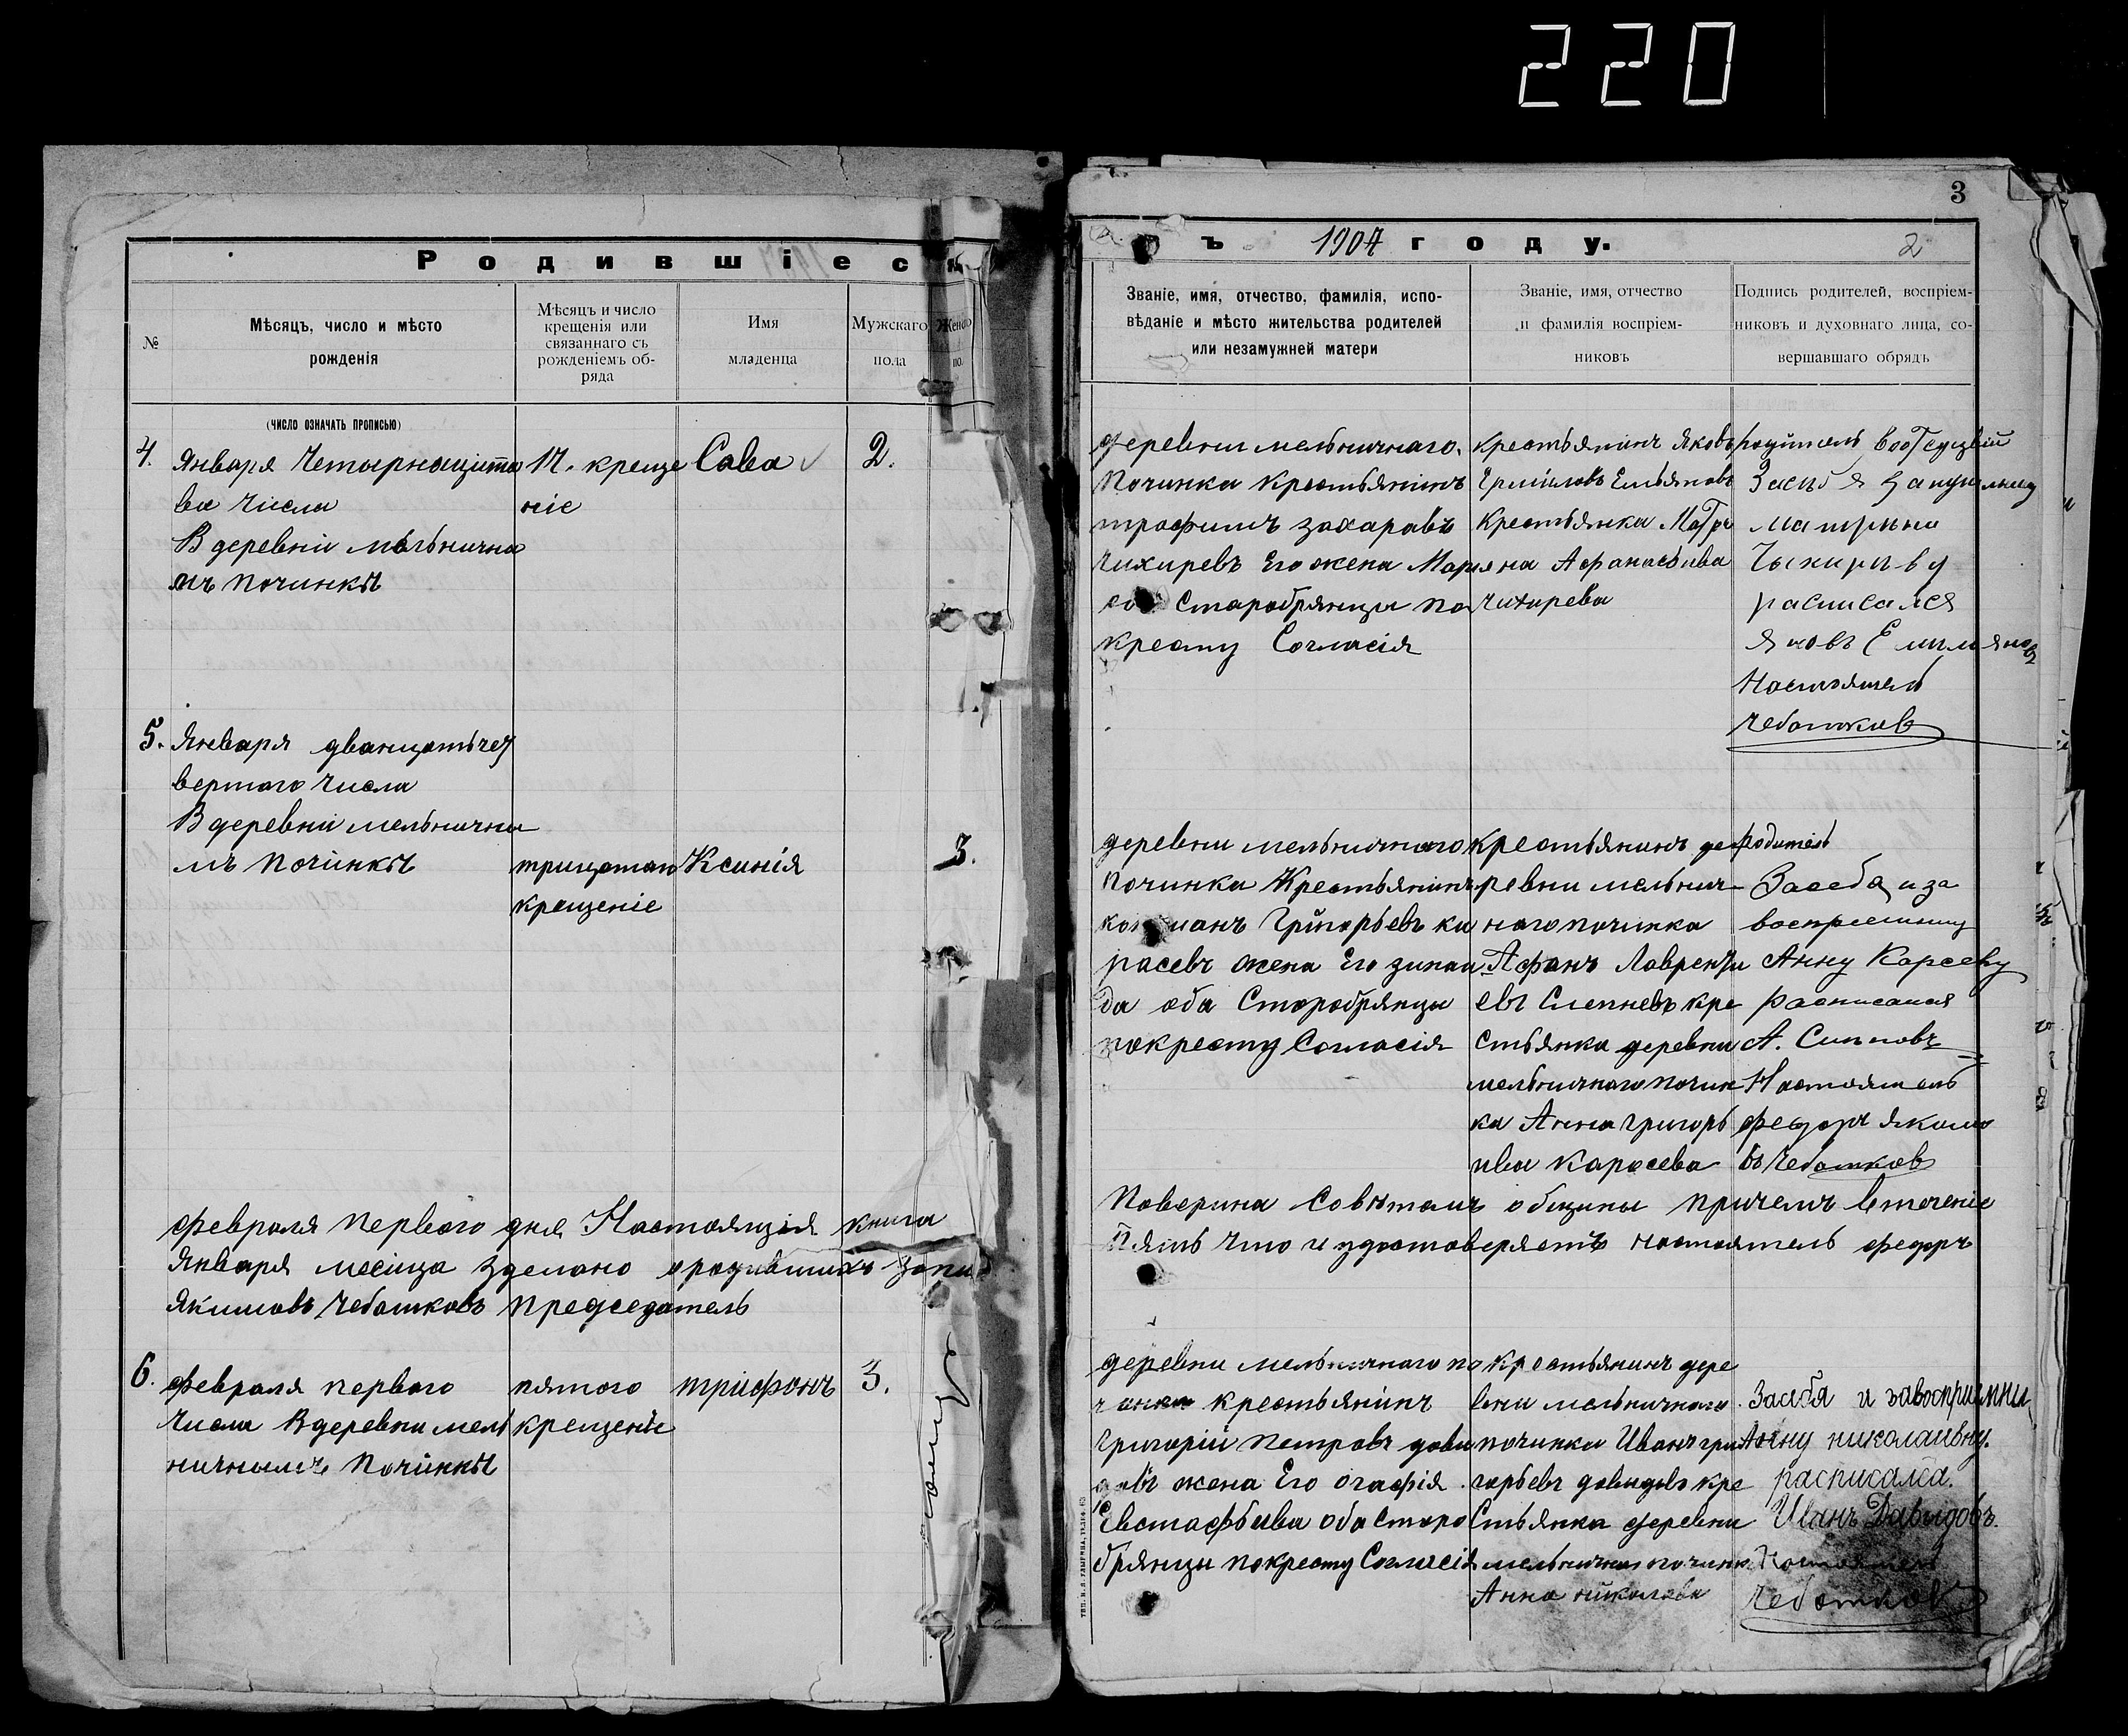 220
3
Родившіеся
ъ 1907 году.
2
№
Мѣсяцъ, число и мѣсто
рожденія
Мѣсяцъ и число
крещенія или
связаннаго съ
рожденіемъ об-
ряда
Имя
младенца
Мужскаго
пола
Женск
по
Званіе, имя, отчество, фамилія, испо-
вѣданіе и мѣсто жительства родителей
или незамужней матери
Званіе, имя, отчество
и фамилія воспріем-
никовъ
Подпись родителей, воспріем-
никовъ и духовнаго лица, со-
вершавшаго обрядъ
(число означать прописью)
4.
Января Четырнацита
ва Числа
В деревни мѣльнична
мъ починкѣ
17. креще
ніе
Сава
2.
деревни мельничнаго.
Починка крестьянинъ
трофимъ захаравъ
чихиревъ Его жена Мар
Старобрянцы по
кресту Согласія
крестьянинъ Яковъ
Ермиловъ Емьяновъ
крестьянка Матр
яна Афанасьива
чихирева
родитель
матрына
Чыхирыву
расписался
Яковъ Емильяновъ
Настоятель
Чебатков
5.
Января дванцать чет
вертаго числа
В деревни мельнична
мъ починкѣ
трицатаго
крещеніе
Ксинія
3.
деревни мельничнаго
починка Крестьянинъ
Григорьевъ ка
расевъ жена Его зинаи
да оба Старобрянцы
покресту Согласія
крестьянинъ де
ревни мельнич
наго починка
Афонъ Лаврентьи
евъ Слепневъ кре
стьянка деревни
мельничнаго почин
ка Анна григорь
ива Карасева
Родитель
Засебя и за
воспреемницу
Анну Карсеву
расписался
А.
Настоятель
Федоръ Якимо
въ Чебатков
февраля первого дня Настоящія книга
Поверина Совѣтамъ общины причемъ втечение
Января месица зделано ородившихъ запи
Пять Что и удостоверяетъ настоятель Федоръ
Якимовъ Чебатковъ председатель
6.
февраля первого
Числа В деревни мель
ничнымъ Починкѣ
пятого
крещение
трифонъ
3.
деревни мельничнаго по
чинка крестьянинъ
григорій Петровъ дави
довъ жена Его огафія
Евстафьива оба старо
брянцы покресту Согласія
крестьянинъ дере
вни мельничнаго
починка Иванъ гри
горьевъ давидовъ кре
Стьянка деревни
мельничнаго починк
Анна николова
Засебя и завосприемни
Анну николаивну.
расписался.
Иванъ Давыдовъ.
Настоятель
Чебатков